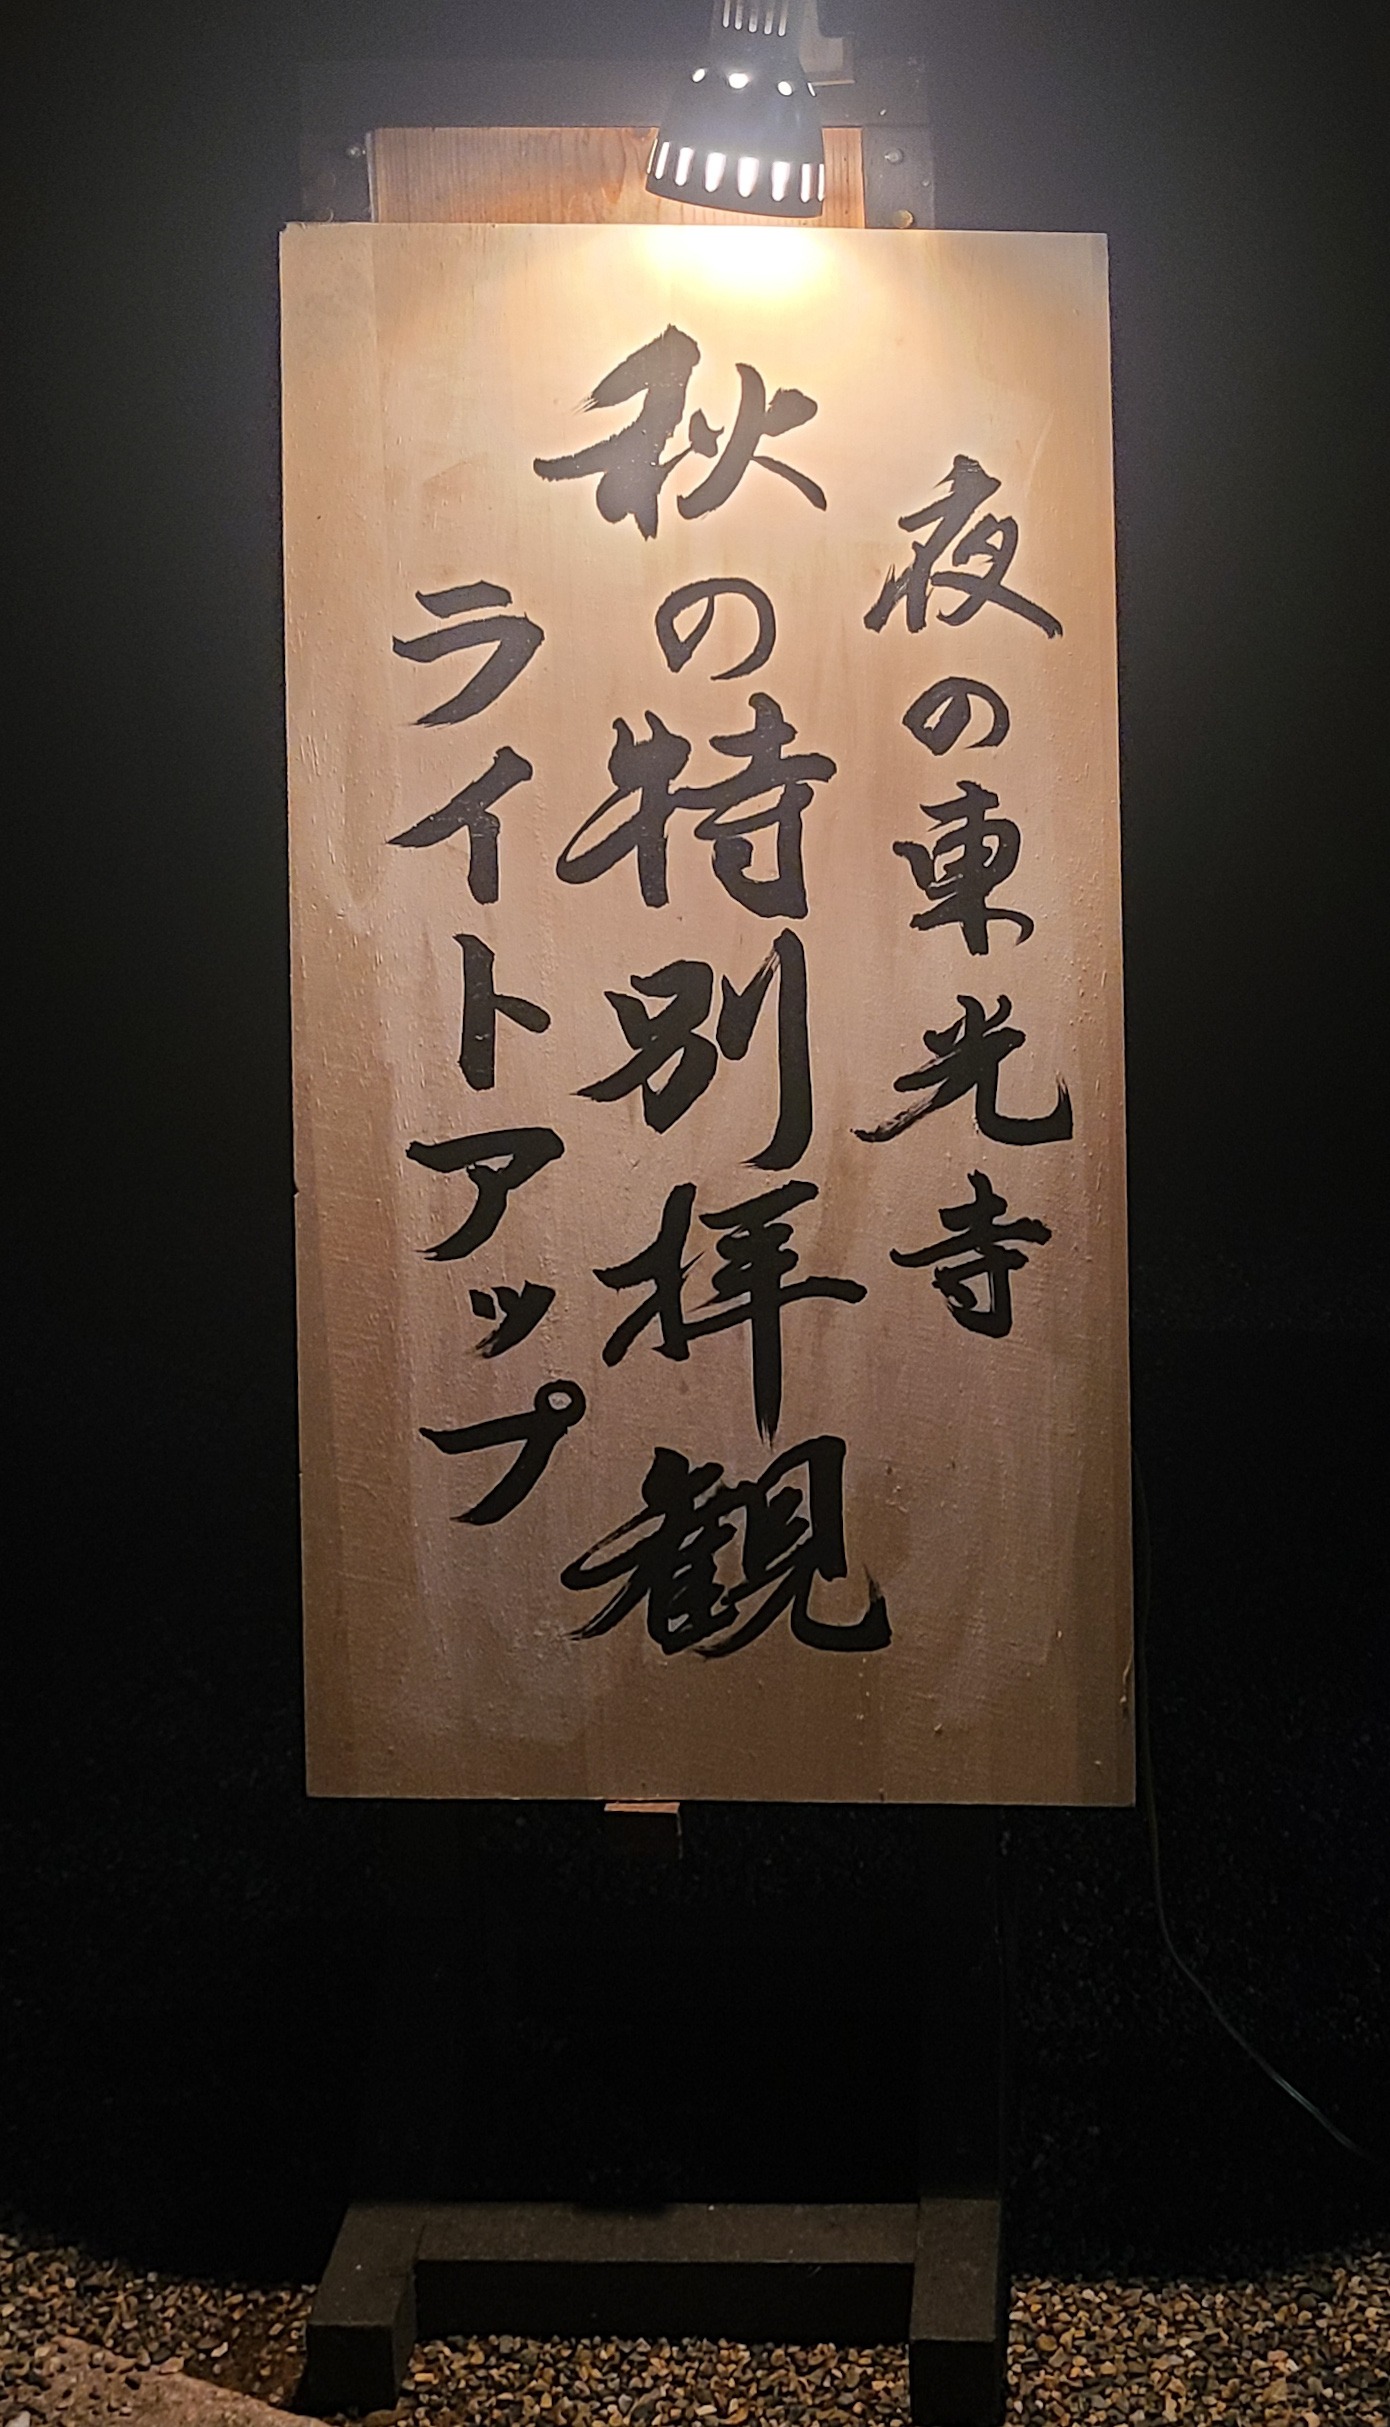 夜の東光寺
秋の特別拝観
ライトアップ